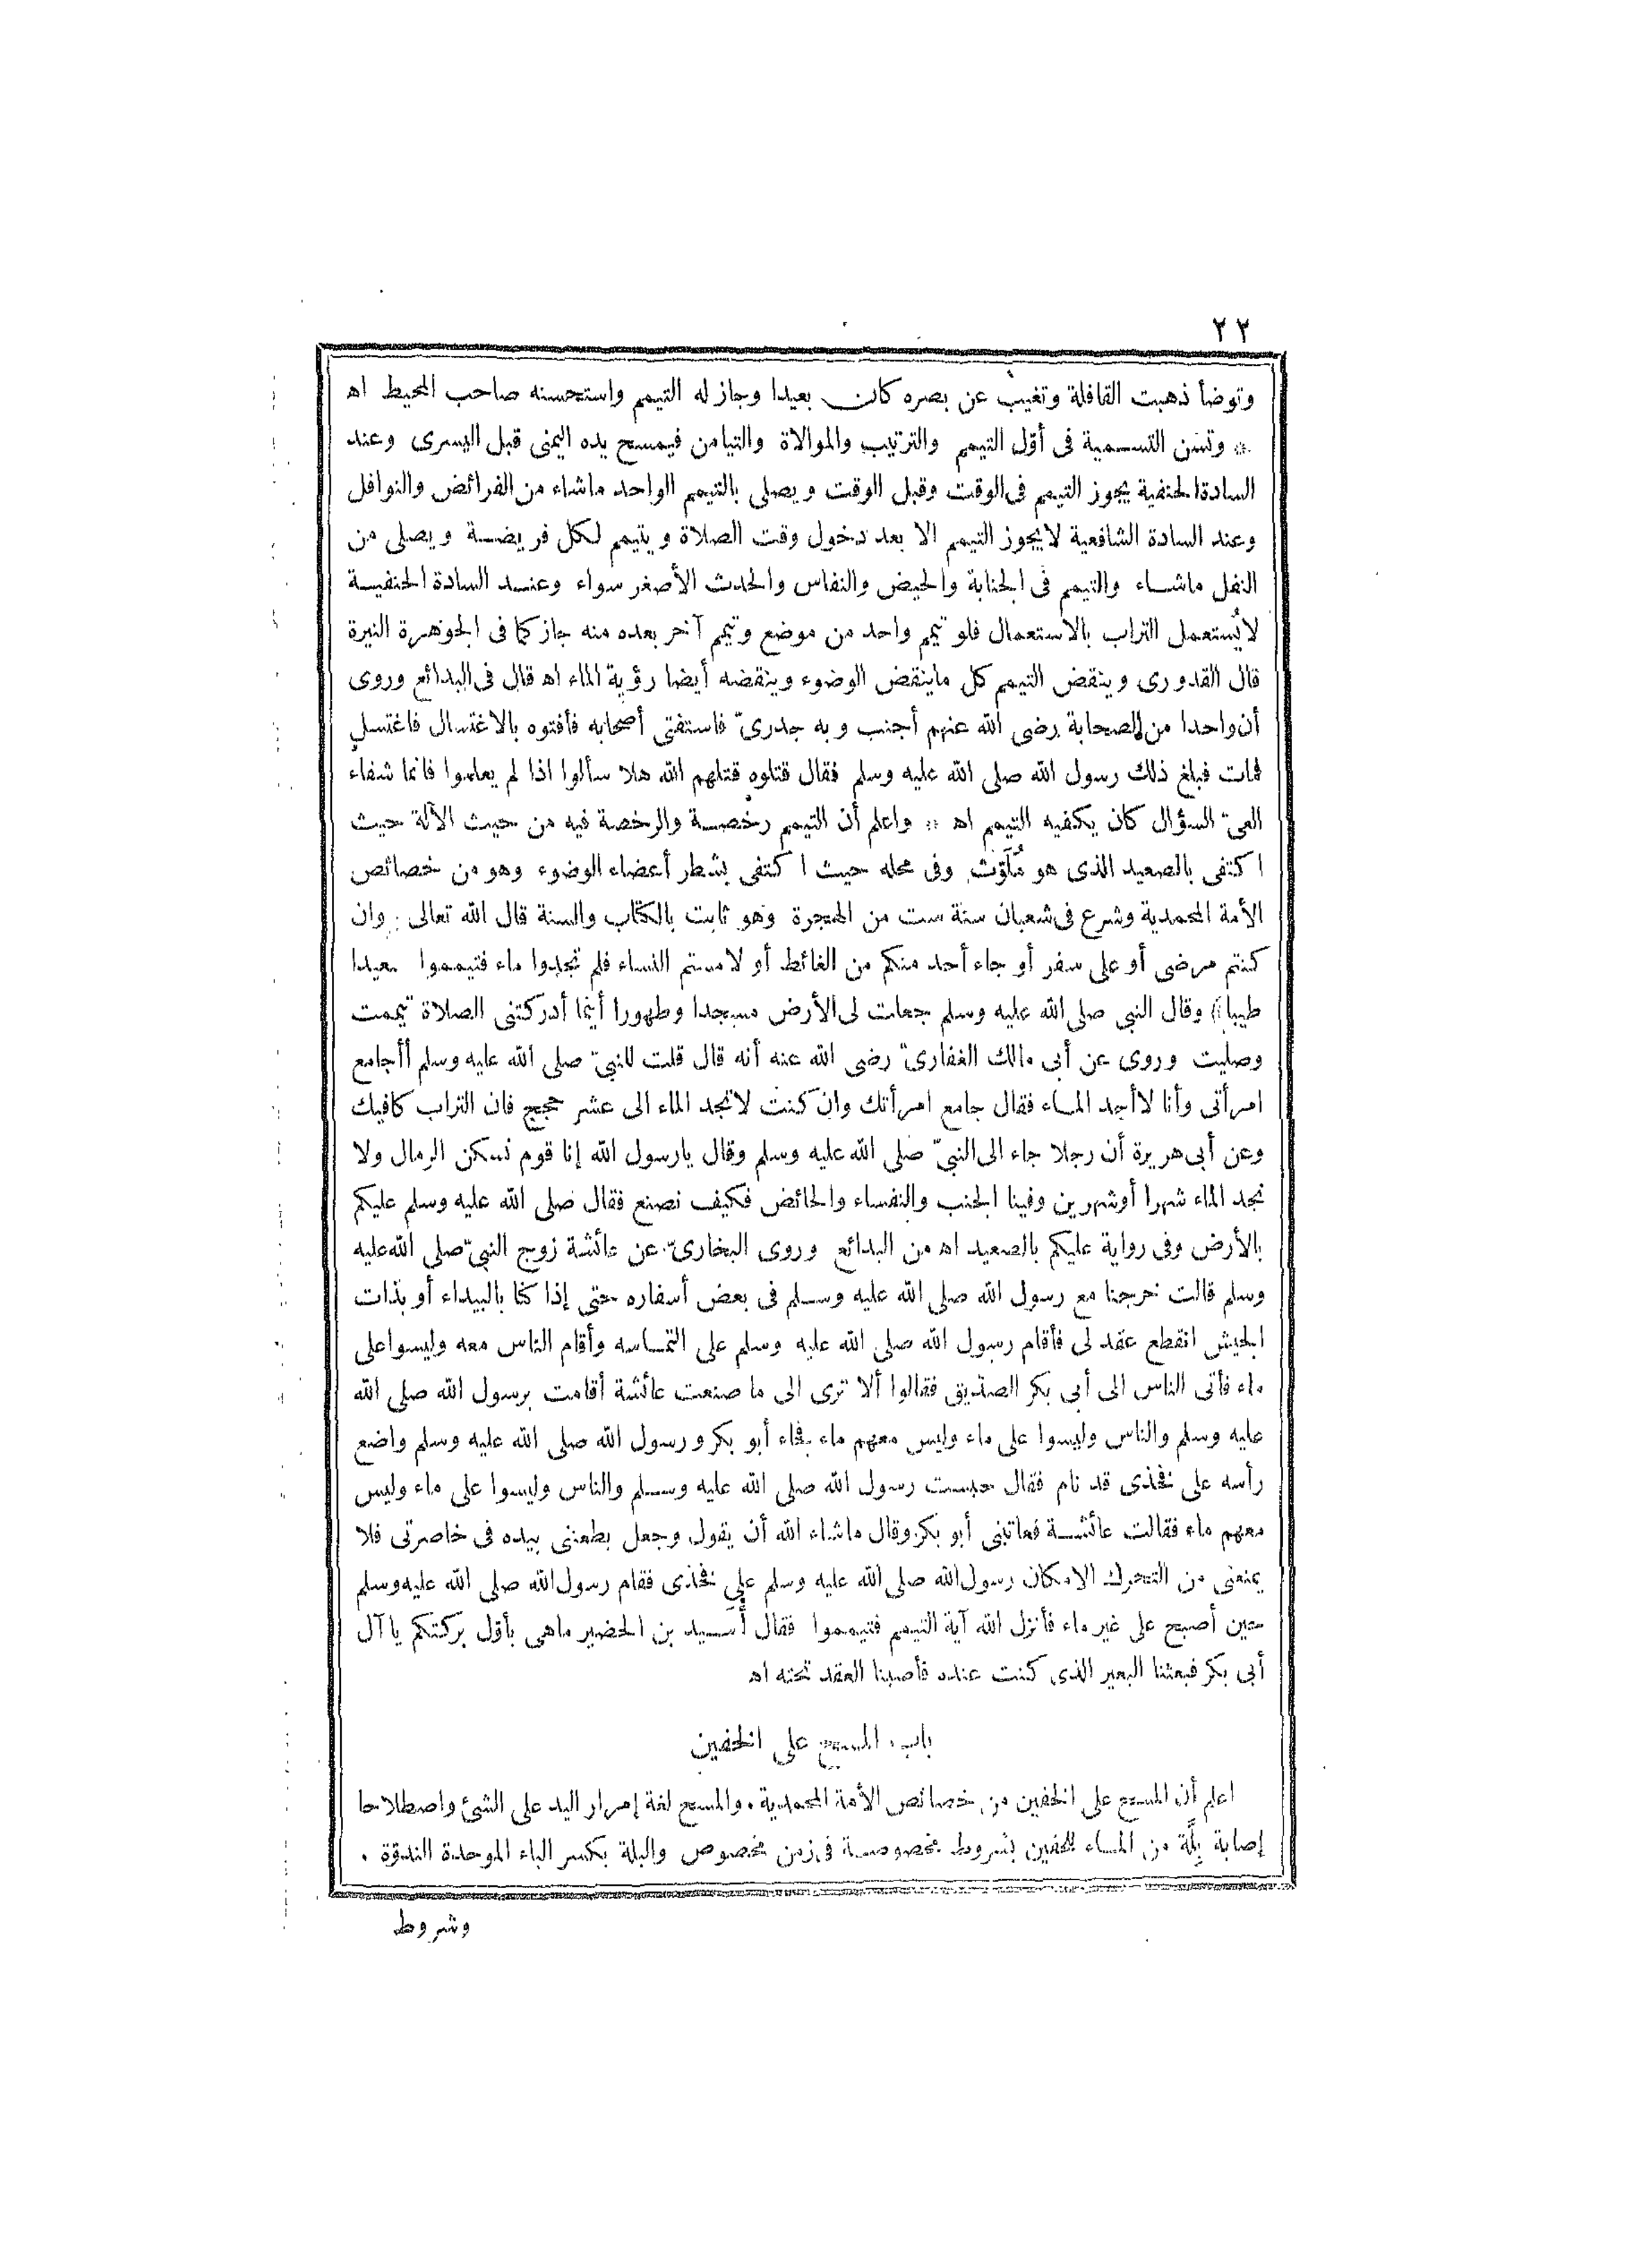 ٢٢
وتوضأ ذهبت القافلة وتغيب عن بصره كان بعيدا وجاز له التيمم واستحسنه صاحب المحيط اه
* وتسن التسمية فى أوّل التيمم والترتيب والموالاة والتيامن فيمسح يده اليمنى قبل اليسرى وعند
السادة الحنفية يجوز التيمم فى الوقت وقبل الوقت ويصلى بالتيمم الواحد ماشاء من الفرائض والنوافل
وعند السادة الشافعية لايجوز التيمم الا بعد دخول وقت الصلاة ويتيمم لكل فريضة ويصلى من
النفل ماشاء والتيمم فى الجنابة والحيض والنفاس والحدث الأصغر سواء وعند السادة الحنفية
لايُستعمل التراب بالاستعمال فلو تيمم واحد من موضع وتيمم آخر بعده منه جاز كما فى الجوهرة النيرة
قال القدورى وينقض التيمم كل ماينقض الوضوء وينقضه أيضا رؤية الماء اه قال فى البدائع وروى
أن واحدا من الصحابة رضى الله عنهم أجنب وبه جدرىّ فاستفتى أصحابه فأفتوه بالاغتسال فاغتسل
فمات فبلغ ذلك رسول الله صلى الله عليه وسلم فقال قتلوه قتلهم الله هلا سألوا اذا لم يعلموا فانما شفاء
العىّ السؤال كان يكفيه التيمم اه * واعلم أن التيمم رخصة والرخصة فيه من حيث الآلة حيث
اكتفى بالصعيد الذى هو مُلَوّث وفى محله حيث اكتفى بشطر أعضاء الوضوء وهو من خصائص
الأمة المحمدية وشرع فى شعبان سنة ست من الهجرة وهو ثابت بالكتاب والسنة قال الله تعالى : وان
كنتم مرضى أو على سفر أو جاء أحد منكم من الغائط أو لامستم النساء فلم تجدوا ماء فتيمموا صعيدا
طيبا) وقال النبي صلى الله عليه وسلم جعلت لى الأرض مسجدا وطهورا أينما أدركتنى الصلاة تيممت
وصليت وروى عن أبى مالك الغفارىّ رضى الله عنه أنه قال قلت للنبىّ صلى الله عليه وسلم أأجامع
امرأتى وأنا لاأجد الماء فقال جامع امرأتك وان كنت لاتجد الماء الى عشر حجج فان التراب كافيك
وعن أبى هريرة أن رجلا جاء الى النبىّ صلى الله عليه وسلم وقال يارسول الله إنا قوم نسكن الرمال ولا
نجد الماء شهرا أو شهرين وفينا الجنب والنفساء والحائض فكيف نصنع فقال صلى الله عليه وسلم عليكم
بالأرض وفى رواية عليكم بالصعيد اه من البدائع وروى البخارىّ عن عائشة زوج النبىّ صلى الله عليه
وسلم قالت خرجنا مع رسول الله صلى الله عليه وسلم فى بعض أسفاره حتى إذا كنا بالبيداء أو بذات
الجيش انقطع عقد لى فأقام رسول الله صلى الله عليه وسلم على التماسه وأقام الناس معه وليسوا على
ماء فأتى الناس الى أبى بكر الصدّيق فقالوا ألا ترى الى ما صنعت عائشة أقامت برسول الله صلى الله
عليه وسلم والناس وليسوا على ماء وليس معهم ماء فجاء أبو بكر ورسول الله صلى الله عليه وسلم واضع
رأسه على فخذى قد نام فقال حبست رسول الله صلى الله عليه وسلم والناس وليسوا على ماء وليس
معهم ماء فقالت عائشة فعاتبنى أبو بكر وقال ماشاء الله أن يقول وجعل يطعننى بيده فى خاصرتى فلا
يمنعنى من التحرك الامكان رسول الله صلى الله عليه وسلم على فخذى فقام رسول الله صلى الله عليه وسلم
حين أصبح على غير ماء فأنزل الله آية التيمم فتيمموا فقال أُسَيد بن الحضير ماهى بأوّل بركتكم يا آل
أبى بكر فبعثنا البعير الذى كنت عنده فأصبنا العقد تحته اه
باب المسح على الخفين
اعلم أن المسح على الخفين من خصائص الأمة المحمدية . والمسح لغة إمرار اليد على الشئ واصطلاحا
إصابة بِلَّة من الماء للخفين بشروط مخصوصة فى زمن مخصوص والبلة بكسر الباء الموحدة الندوّة .
وشروط